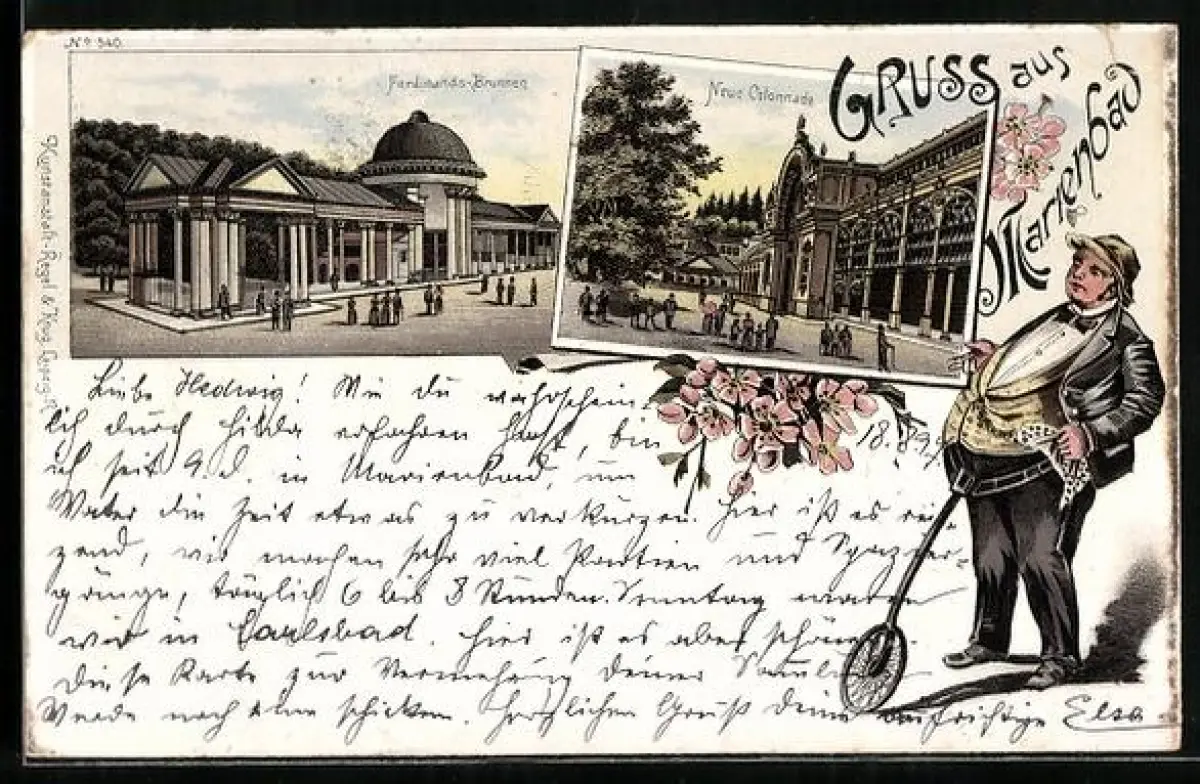 No 540.
Ferdinands-Brunnen
Neue Colonnade
Gruss aus
Marienbad
Kunstanstalt Regel & Krug, Leipzig
18.8.9
Liebe Hedwig! Wie du wahrschein-
lich durch Hilda erfahren hast, bin
ich seit 9. d. in Marienbad, um
Vater die Zeit etwas zu verkürzen. Hier ist es rei-
zend, wir machen sehr viel Partien und Spazier-
gänge, täglich 6 bis 8 Stunden. Sonntag waren
wir in Carlsbad. Hier ist es aber schöner.
Diese Karte zur Vermehrung deiner
Werde noch eine schicken. Herzlichen Gruß deine aufrichtige Elsa.